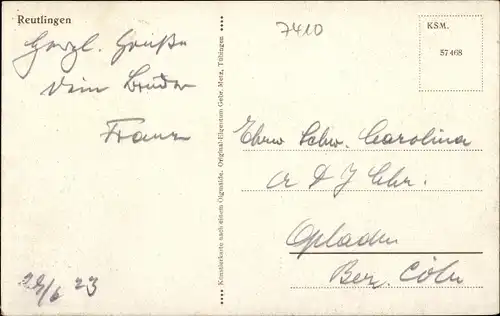 Reutlingen
Herzl. Grüße
Dein Bruder
Franz
28/6 23
**** Künstlerkarte nach einem Ölgemälde. Original-Eigentum Gebr. Metz, Tübingen ****
7410
KSM.
57468
Ehrw Schw. Carolina
A D J Chr.
Opladen
Bez. Cöln